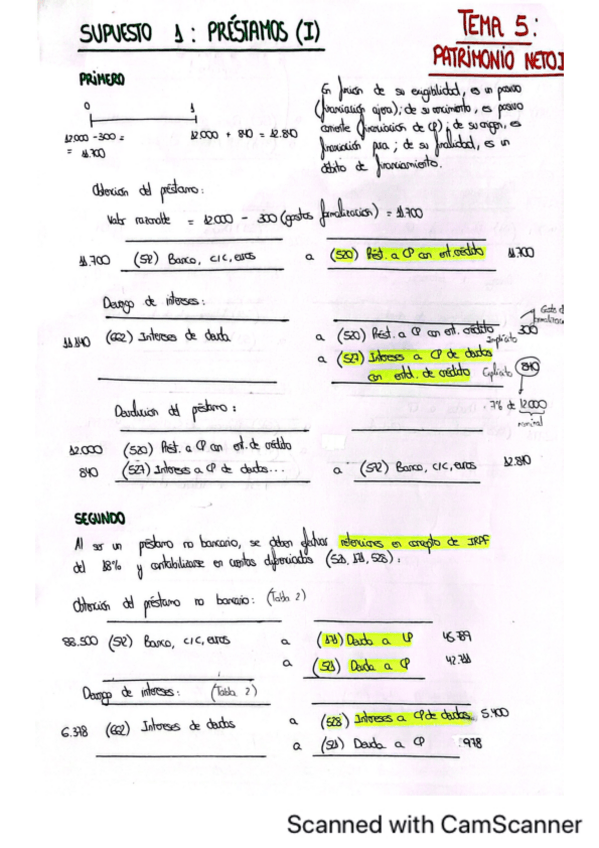 SUPUESTO 1 : PRÉSTAMOS (I)
TEMA 5:
PATRIMONIO NETO I
PRIMERO
0 1
12.000 - 300 =
= 11.700
12.000 + 840 = 12.840
En función de su exigibilidad, es un pasivo
(financiación ajena); de su vencimiento, es pasivo
corriente (financiación de CP); de su origen, es
financiación ; de su finalidad, es un
débito de financiamiento.
Obtención del préstamo:
Valor razonable = 12.000 - 300 (gastos formalización) = 11.700
11.700 (572) Banco, c/c, euros a (520) Prést. a CP con ent. crédito 11.700
Devengo de intereses:
(662) Intereses de deuda a (520) Prést. a CP con ent. crédito 300
Gastos de
formalización
Implícito
a (527) Intereses a CP de deudas
con entd. de crédito Explícito 840
7% de 12.000
nominal
Devolución del préstamo:
12.000 (520) Prést. a CP con ent. de crédito
840 (527) Intereses a CP de deudas... a (572) Banco, c/c, euros 12.840
SEGUNDO
Al ser un préstamo no bancario, se deben efectuar retenciones en concepto de IRPF
del 18% y contabilizarse en cuentas diferenciadas (521, 171, 528):
Obtención del préstamo no bancario: (Tabla 2)
88.500 (572) Banco, c/c, euros a (171) Deuda a LP 45.789
a (521) Deuda a CP
Devengo de intereses: (Tabla 2)
6.378 (662) Intereses de deudas a (528) Intereses a CP de deudas 5.400
a (521) Deuda a CP 978
Scanned with CamScanner